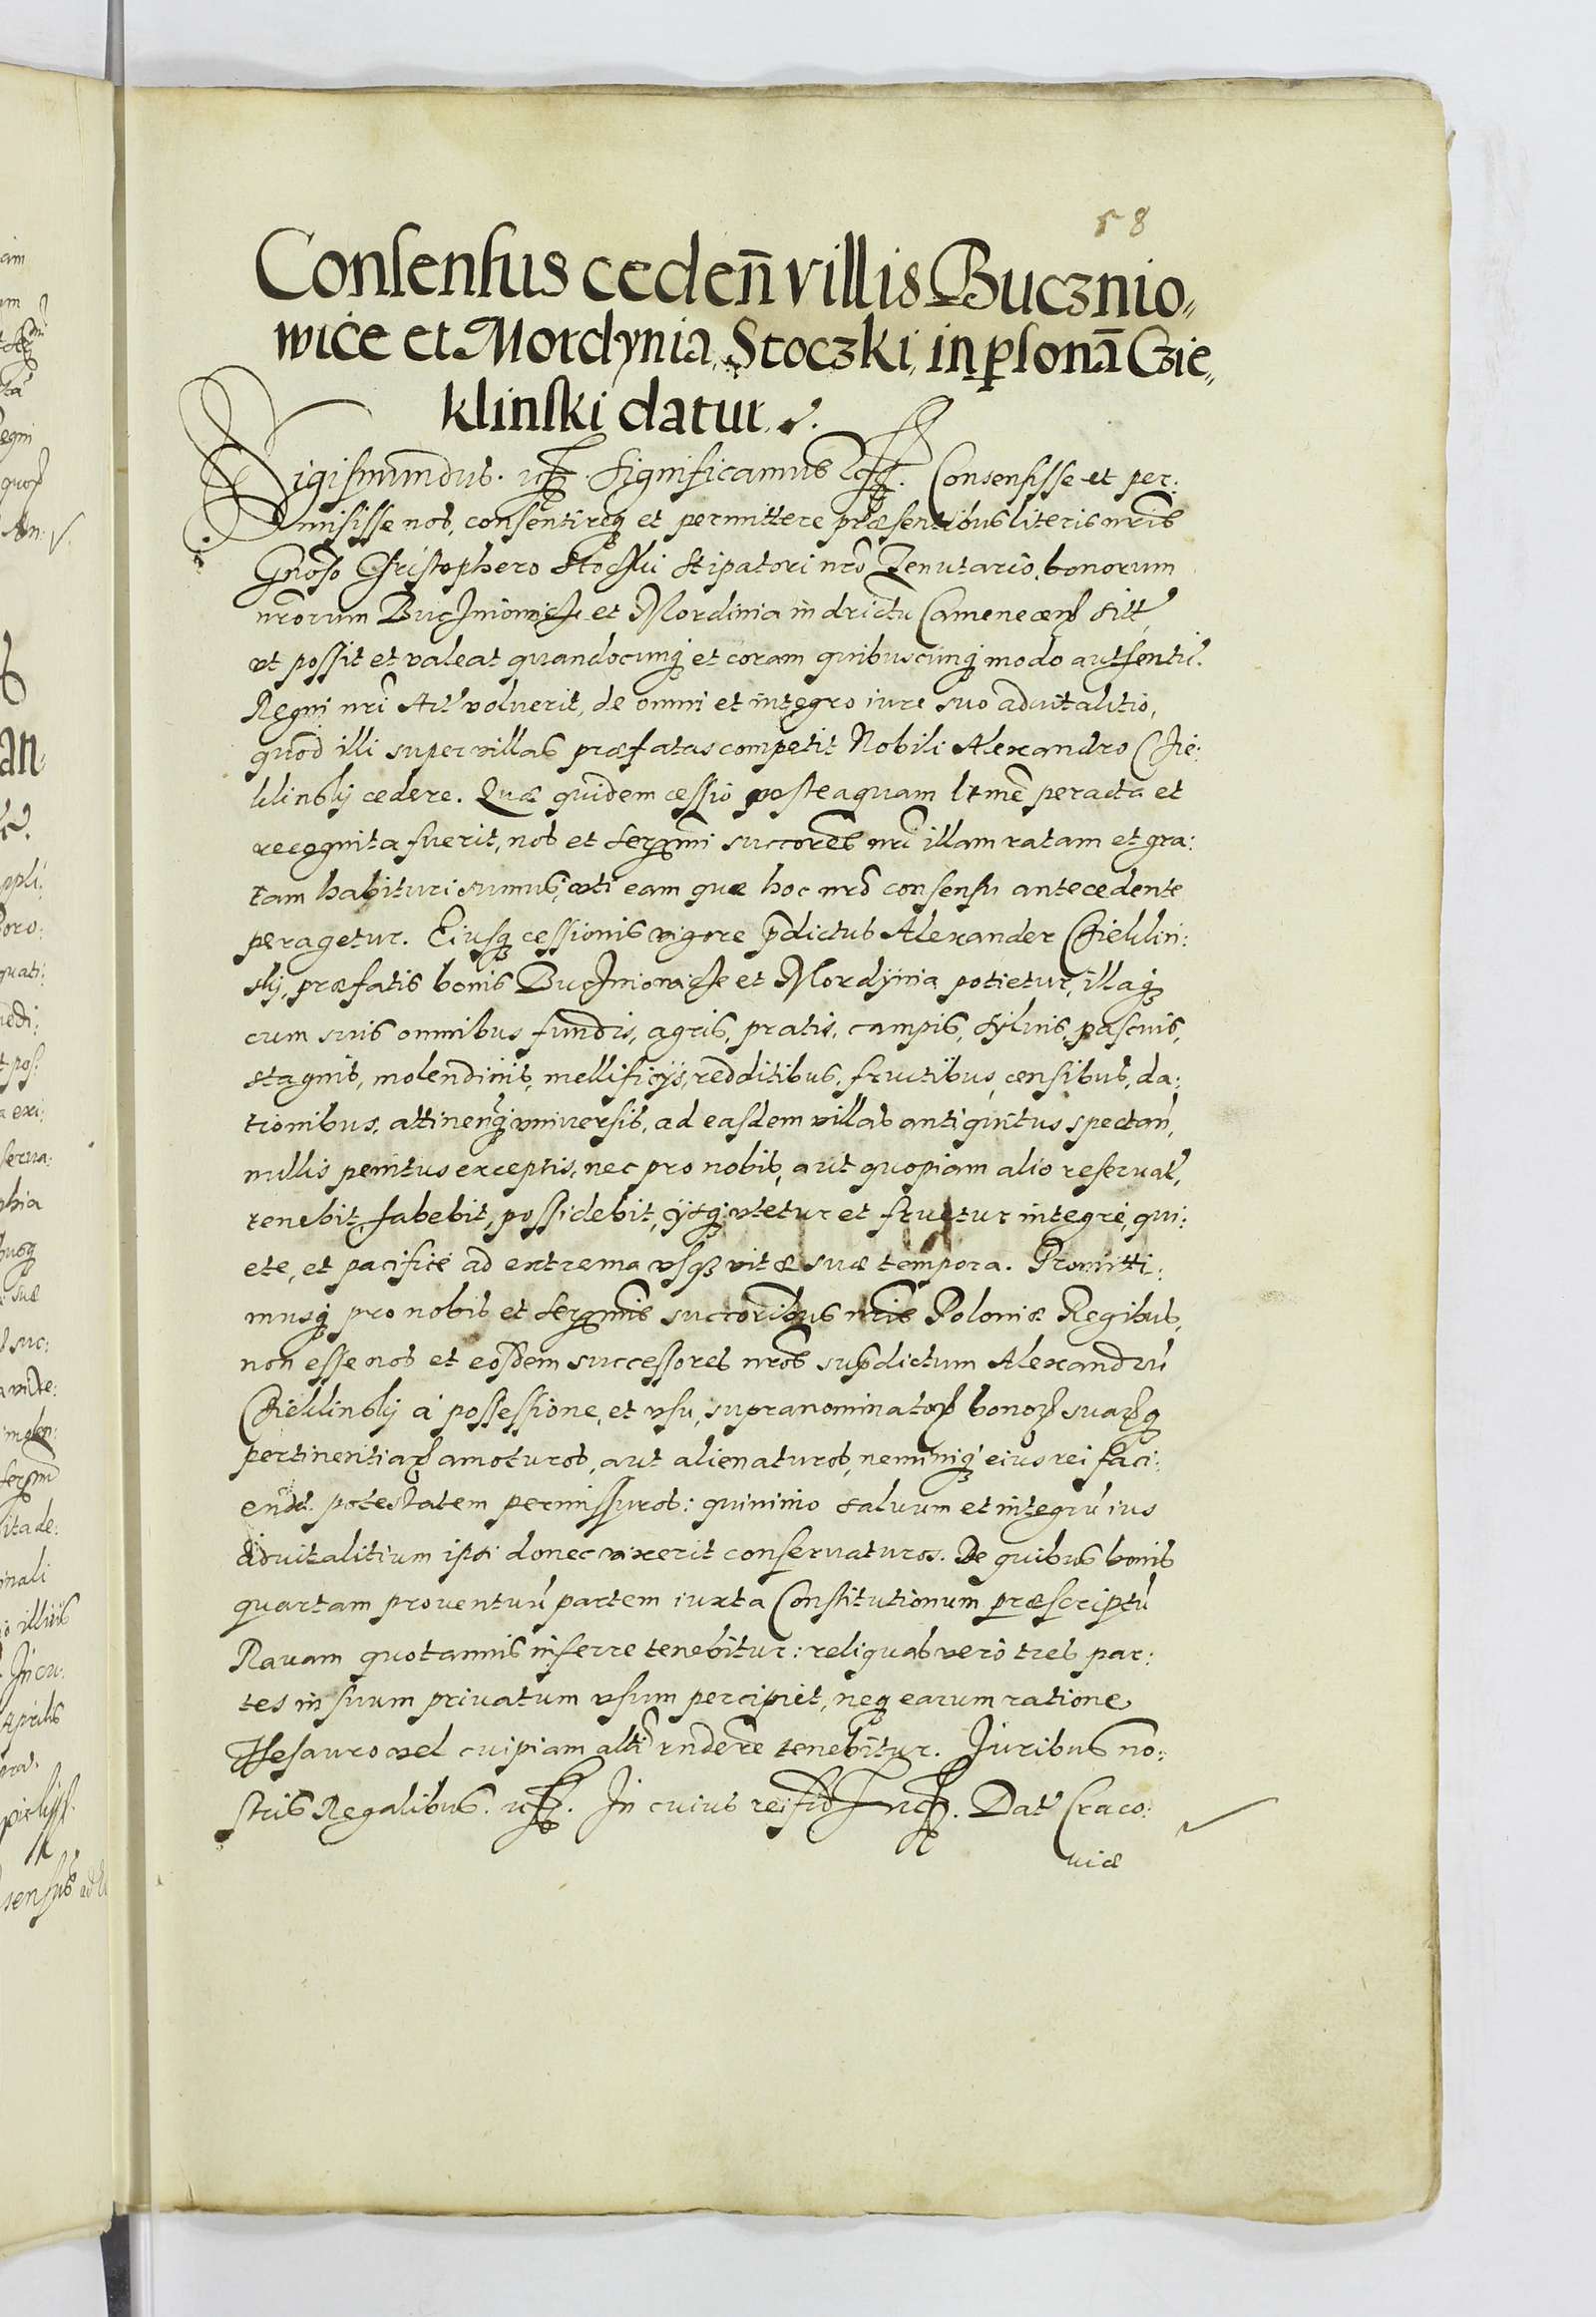 58
Consensus cedeñ villis Bucznio„
wice et Mordynia, Stoczki, in psonã Czie„
klinski datur.
Sigismundus. Significamus Consensisse et per:
misisse nos, consentireq; et permittere præsentibus literis nr̃is
Gnoso Christophero Stoczki Stipatori nr̃o Tenutario, bonorum
nr̃orum Buczniowicze et Mordinia in drictu Camenecen sitt,
ut possit et valeat quandocunq; et coram quibuscunq; modo autenti.
Regni nr̃i Act voluerit, de omni et integro iure suo aduitalitio,
quod illi super villas præfatas competit Nobili Alexandro Czie:
klinskij cedere. Quæ quidem cessio posteaquam ltmẽ peracta et
recognita fuerit, nos et Sermi succores nr̃i illam ratam et gra:
tam habituri sumus, uti eam quæ hoc nr̃o consensu antecedente
peragetur. Eiusq; cessionis vigore p̃dictus Alexander Czieklin:
skij, præfatis bonis Buczniowicze et Mordÿnia potietur, illaq;
cum suis omnibus fundis, agris, pratis, campis, syluis, pascuis,
stagnis, molendinis, mellificijs, redditibus, fructibus, censibus, da:
tionibus, attinenq; vniuersis, ad easdem villas antiquitus spectan,
nullis penitus exceptis, nec pro nobis, aut quopiam alio reseruat,
tenebit, habebit, possidebit, ijsq; vtetur et fruetur integrè, qui:
ete, et pacificè ad extrema vsq; vitæ suæ tempora. Promitti:
musq; pro nobis et Sermis succoribus nr̃is Poloniæ Regibus,
non esse nos et eosdem successores nr̃os sup̃dictum Alexandrũ
Czieklinskij à possessione, et vsu, supranominator bonor suarq;
pertinentiar amoturos, aut alienaturos, neminiq; eius rei faci:
endi potestatem permissuros: quinimo saluum et integrũ ius
aduitalitium ipsi donec vixerit conseruaturos. De quibus bonis
quartam prouentuũ partem iuxta Constitutionum præscriptũ
Rauam quotannis inferre tenebitur: reliquas verò tres par:
tes in suum priuatum vsum percipiet, neq earum ratione
Thesauro vel cuipiam alteri rñdere tenebitur. Juribus no:
stris Regalibus. In cuius rei fid Dat Craco:
uiæ